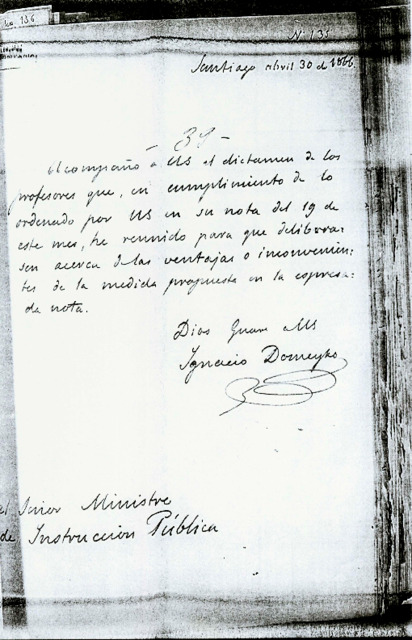 No. 136
N. 135
Santiago abril 30 de 1866
Acompaño a US el dictamen de los
profesores que, en cumplimiento de lo
ordenado por US en su nota del 19 de
este mes, he reunido para que delibera-
sen acerca de las ventajas o inconvenien-
tes de la medida propuesta en la espresa-
da nota.
Dios Gua a US
Ignacio Domeyko
el Señor Ministro
de Instruccion Pública